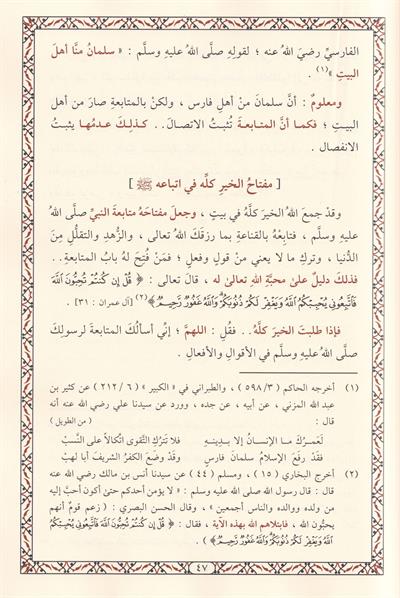 الفارسيِّ رضيَ اللهُ عنه ؛ لقولِهِ صلَّى اللهُ عليهِ وسلَّم : « سلمانُ منَّا أهلَ
البيتِ »(١) .
ومعلومٌ : أنَّ سلمانَ منْ أهلِ فارس ، ولكنْ بالمتابعةِ صارَ من أهلِ
البيتِ ؛ فكما أنَّ المتابعةَ تُثبتُ الاتصالَ.. كذلكَ عدمُها يثبتُ
الانفصال .
[ مفتاحُ الخيرِ كلِّه في اتباعه ﷺ ]
وقد جمعَ اللهُ الخيرَ كلَّهُ في بيتٍ ، وجعلَ مفتاحَهُ متابعةَ النبيِّ صلَّى اللهُ
عليهِ وسلَّم ، فتابِعْهُ بالقناعةِ بما رزقَكَ اللهُ تعالى ، والزُّهدِ والتقلُّلِ مِنَ
الدُّنيا ، وتركِ ما لا يعني منْ قولٍ وفعلٍ ؛ فمَنْ فُتِحَ لهُ بابُ المتابعةِ..
فذلكَ دليلٌ علىٰ محبَّةِ اللهِ تعالىٰ له ، قالَ تعالى : ﴿ قُلْ إِن كُنتُمْ تُحِبُّونَ ٱللَّهَ
فَٱتَّبِعُونِي يُحْبِبْكُمُ ٱللَّهُ وَيَغْفِرْ لَكُمْ ذُنُوبَكُمْ وَٱللَّهُ غَفُورٌ رَّحِيمٌ ﴾(٢) [آل عمران : ٣١] .
فإذا طلبتَ الخيرَ كلَّهُ.. فقُلِ : اللهمَّ ؛ إني أسألُكَ المتابعةَ لرسولِكَ
صلَّى اللهُ عليهِ وسلَّم في الأقوالِ والأفعالِ .
(١) أخرجه الحاكم ( ٥٩٨/٣ ) ، والطبراني في « الكبير » ( ٢١٢/٦ ) عن كثير بن
عبد الله المزني ، عن أبيه ، عن جده ، وورد عن سيدنا علي رضي الله عنه أنه
قال : ( من الطويل )
لَعمرُكَ مـا الإنسـانُ إلا بـدِينِـهِ فلا تتركِ التَّقوى اتكالاً على النَّسبْ
فقَدْ رفَعَ الإسلامُ سلمانَ فارسٍ وقدْ وضعَ الكفرُ الشريفَ أبا لهبْ
(٢) أخرج البخاري ( ١٥ ) ، ومسلم ( ٤٤ ) عن سيدنا أنس بن مالك رضي الله عنه
قال : قال رسول الله صلى الله عليه وسلم : « لا يؤمن أحدكم حتىٰ أكون أحبَّ إليه
من ولده ووالده والناس أجمعين » ، وقال الحسن البصري : ( زعم قومٌ أنهم
يحبُّون الله ، فابتلاهم الله بهذه الآية ، فقال : ﴿ قُلْ إِن كُنتُمْ تُحِبُّونَ ٱللَّهَ فَٱتَّبِعُونِي يُحْبِبْكُمُ
ٱللَّهُ وَيَغْفِرْ لَكُمْ ذُنُوبَكُمْ وَٱللَّهُ غَفُورٌ رَّحِيمٌ ﴾ ) .
٤٧